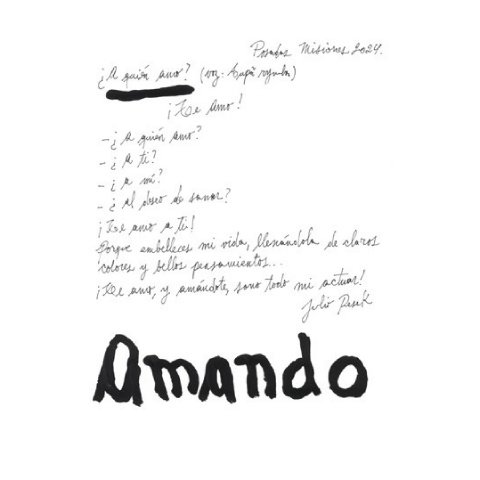 Posadas Misiones 2024.
¿A quién amo? (voz: Tupã
¡Te Amo!
-¿A quién amo?
-¿A ti?
-¿a mí?
-¿al deseo de sanar?
¡Te amo a ti!
Porque embelleces mi vida, llenándola de claros
colores y bellos pensamientos...
¡Te amo, y amándote, sano todo mi actuar!
Julio
Amando